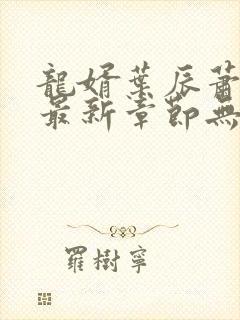 龍婿葉辰蕭
最新章節無
羅樹寧